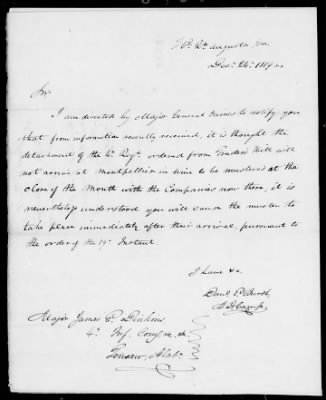 Hd. Qrs. Augusta, Ga.
Dec. 24. 1819.
Sir,
I am directed by Major General Gaines to notify you
that from information recently received, it is thought the
detachment of the 4th Regt. ordered from Traders Hill will
not arrive at Montpellier in time to be mustered at the
close of the Month with the Companies now there, it is
nevertheless understood you will cause the muster to
take place immediately after their arrival, pursuant to
the order of the 19th Instant.
I have &c.
Danl. E. Burch,
Major James E. Dinkins,
4th Inf. Comg. &c.
Tensaw, Alaba.